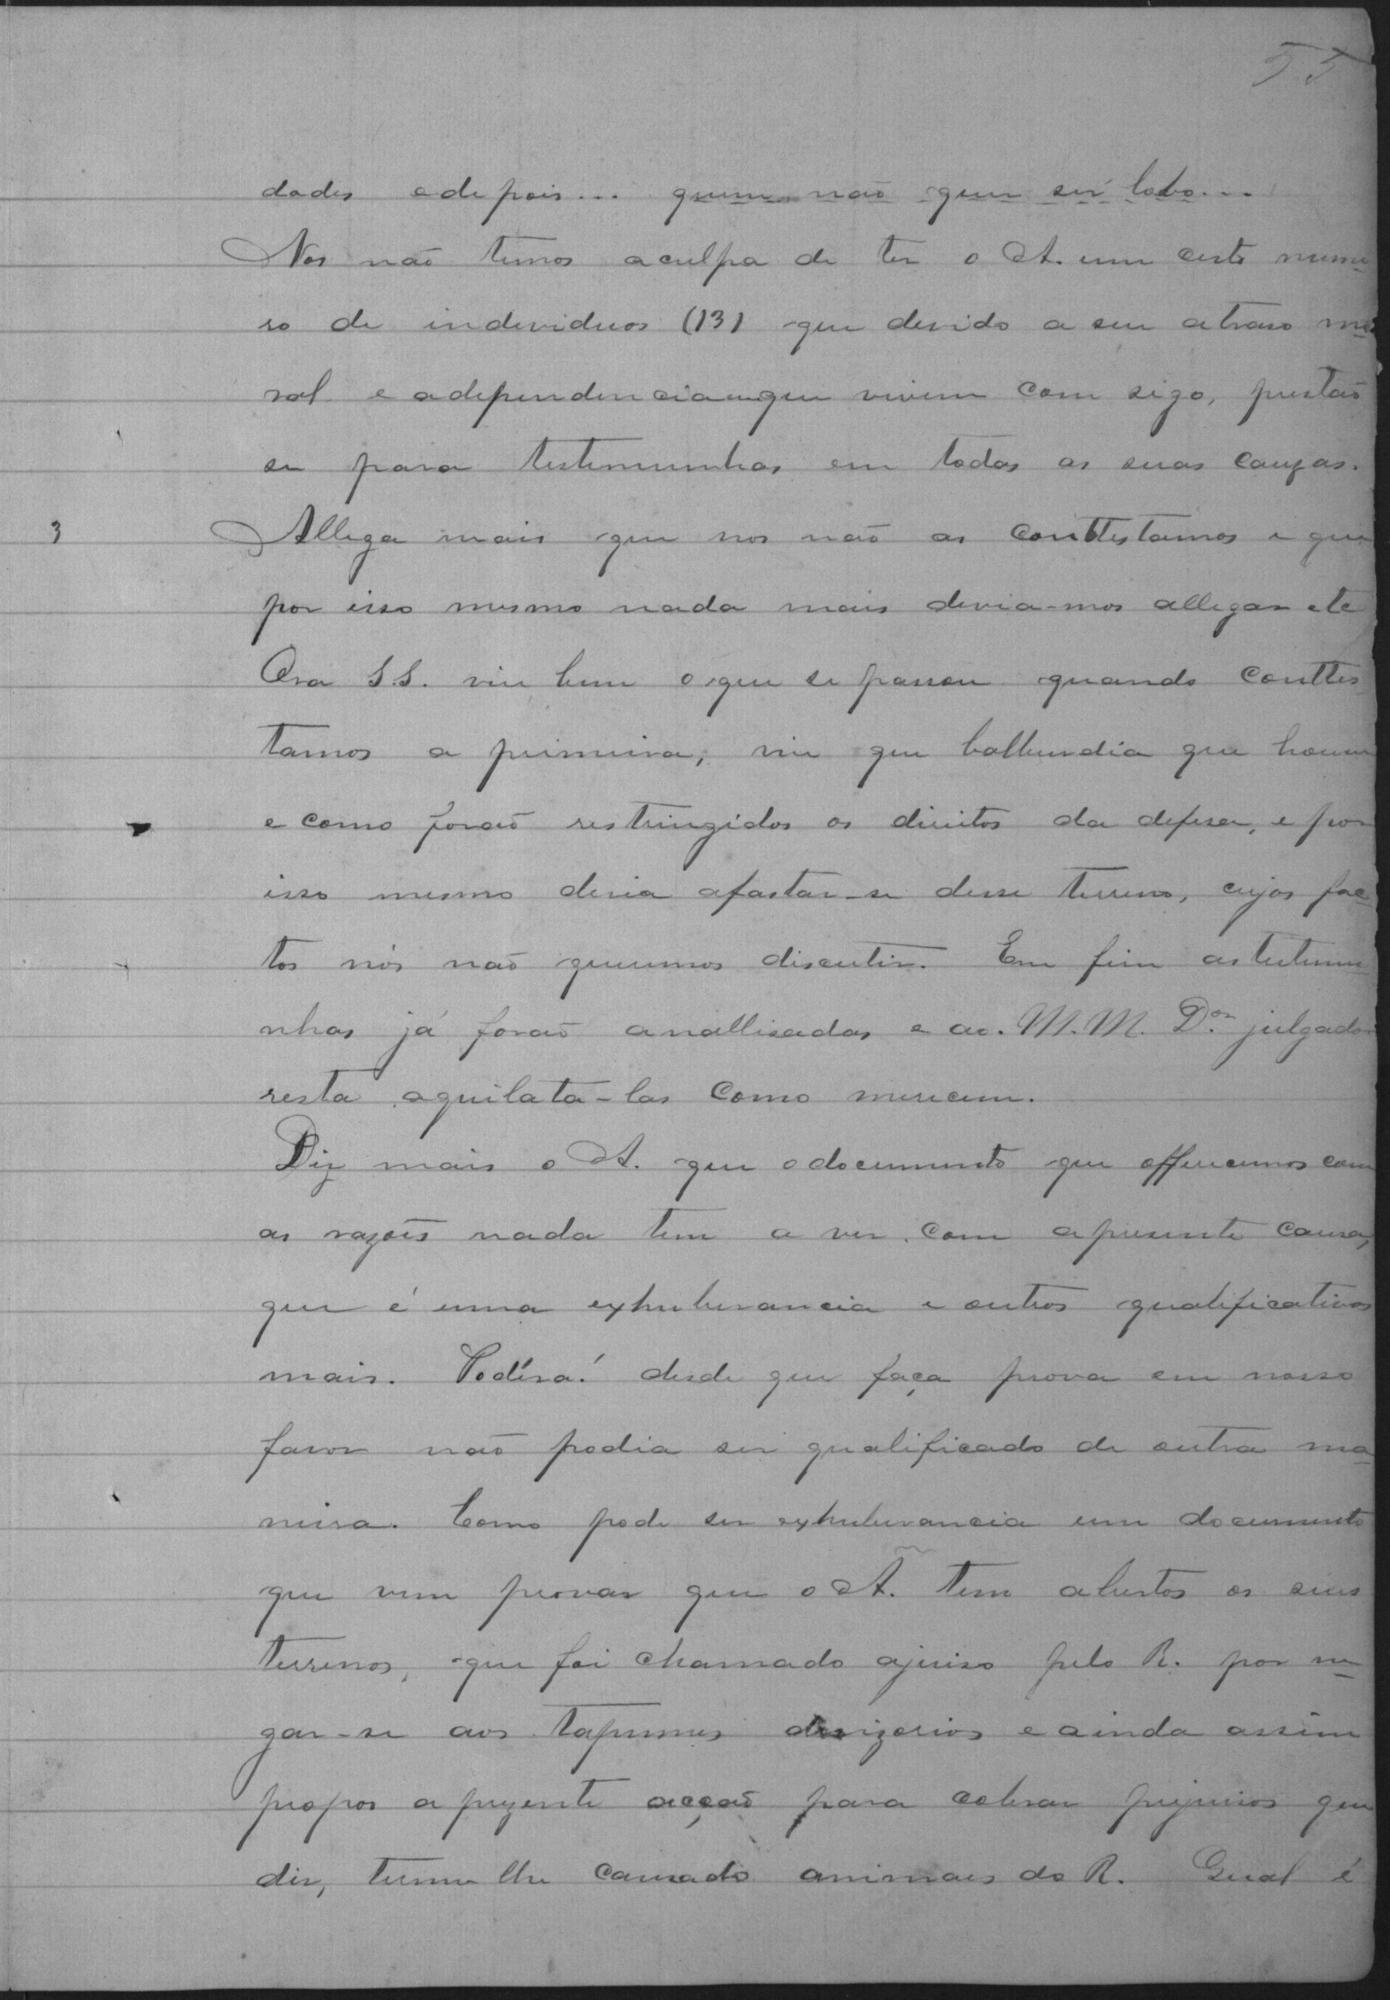 55
dades e depois... quem não quer ser lobo...
Nos não temos a culpa de ter o A. um certo nume-
ro de individuos (13) que devido a seu atraso mo-
ral e a dependencia em que vivem com sigo, prestão
se para testemunhas em todas as suas cauzas.
3 Allega mais que nos não as conttestamos e que
por isso mesmo nada mais devia-mos allegar etc
Ora S.S. viu bem o que se passou quando conttes
tamos a primeira, viu que balburdia que houve
e como forão restringidos os direitos da defesa, e por
isso mesmo devia afastar-se desse terreno, cujos fac-
tos nós não queremos discutir. Em fim as testemu-
nhas já forão anallisadas e ao. M.M. Dor. julgador
resta aquilata-las como merecem.
Diz mais o A. que o documento que offerecemos com
as razões nada tem a ver com a presente causa,
que é uma exhuberancia e outros qualificativos
mais. Podéra! desde que faça prova em nosso
favor não podia ser qualificado de outra ma-
neira. Como pode ser exhuberancia um documento
que vem provar que o A. tem abertos os seus
terrenos, que foi chamado a juiso pelo R. por ne-
gar-se aos tapumes divizorios e ainda assim
propos a prezente acção para cobrar prejuisos que
diz, terem lhe causado animaes do R. Qual é